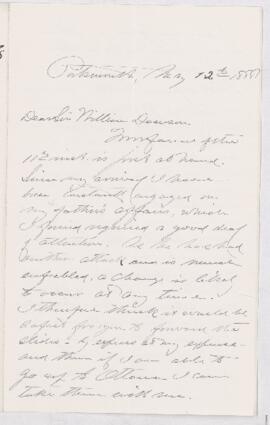 Portsmouth, May 12th 188
Dear Sir William Dawson
Your favor of the
11th inst. is just at hand.
Since my arrival I have
been constantly engaged on
my father's affairs, which
I found required a good deal
of attention. As he has had
another attack and is much
enfeebled, a change is liable
to occur at any time.
I therefore think it would be
best for you to forward the
slides by express at my expense
and then if I am able to
go up to Ottawa I can
take them with me.